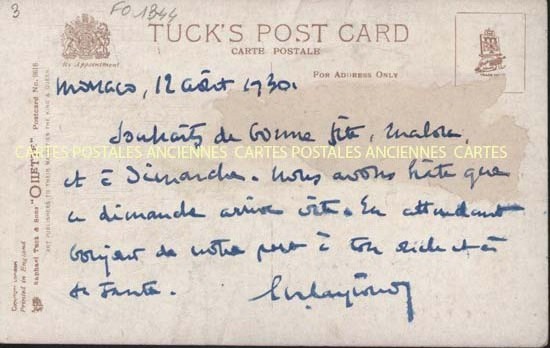 3
FO 1344
TUCK'S POST CARD
CARTE POSTALE
By Appointment
FOR ADDRESS ONLY
Monaco, 12 août 1930.
Souhaits de bonne fête,
CARTES POSTALES ANCIENNES CARTES POSTALES ANCIENNES CARTES
et à Dimanche. Nous avons hâte que
ce dimanche arrive vite. En attendant
bonjour de notre part à ton
et à
ta tante.
RAPHAEL TUCK & SONS "OILETTE" Postcard No. 9616
ART PUBLISHERS TO THEIR MAJESTIES THE KING & QUEEN
Printed in England